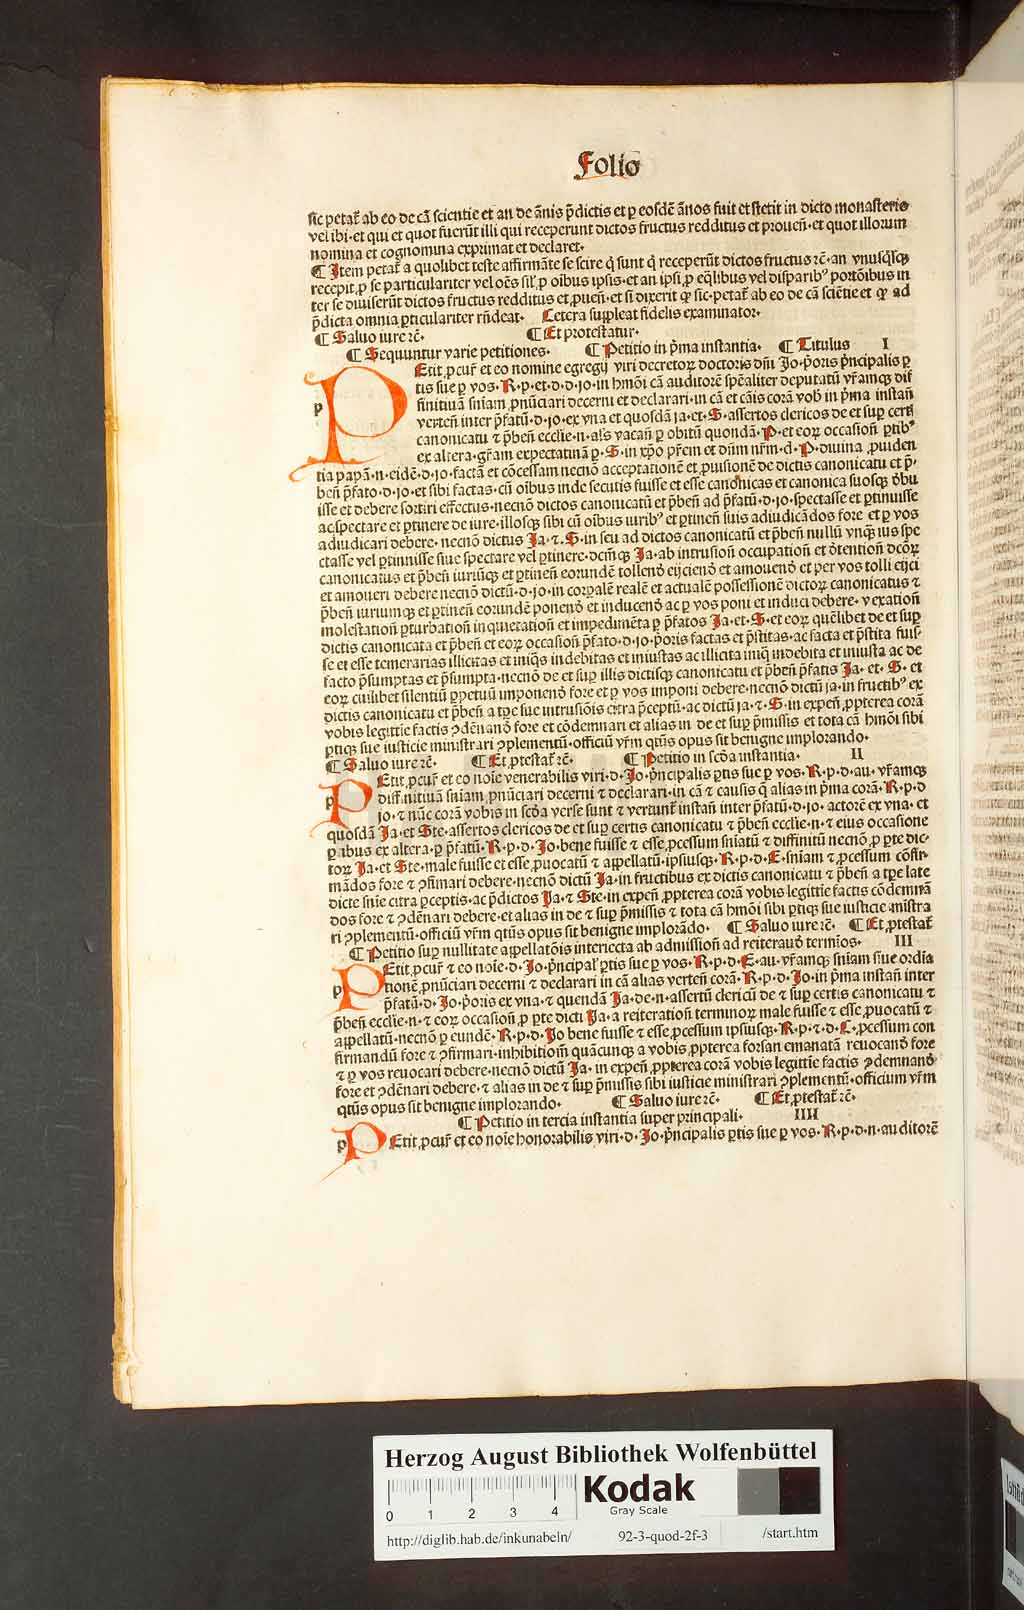 Folio
sic petat̃ ab eo de cã scientie et an de ãnis p̃dictis et ꝑ eosdẽ ãnos fuit et stetit in dicto monasterio
vel ibi·et qui et quot fuerũt illi qui receperunt dictos fructus redditus et proueñ·et quot illorum
nomina et cognomina exprimat et declaret·
¶ Item petat̃ a quolibet teste affirmãte se scire q̃ sunt q̃ receperũt dictos fructus ꝛc̃·an vnusq̃sqꝫ
recepit,ꝓ se particulariter vel oẽs sil̃,ꝓ oibus ipsis·et an ipsi,ꝓ eq̃libus vel disparibꝰ portõibus in
ter se diuiserũt dictos fructus redditus et,ꝓueñ·et si dixerit ꝙ sic·petat̃ ab eo de cã sciẽtie et ꝙ ad
p̃dicta omnia ꝑticulariter rñdeat· Cetera suppleat fidelis examinator·
¶ Saluo iure ꝛc̃· ¶ Et protestatur·
¶ Sequuntur varie petitiones· ¶ Petitio in p̃ma instantia· ¶ Titulus I
p PEtit,ꝓcur̃ et eo nomine egregij viri decretoꝝ doctoris dñi Jo·p̃oris p̃ncipalis ꝑ
tis sue ꝑ vos·R·p·et·d·d·jo·in hmõi cã auditorẽ spẽaliter deputatũ vr̃amqꝫ dif
finitiuã sñiam,ꝓnũciari decerni et declarari·in cã et cãis corã vob̃ in p̃ma instañ
verteñ inter p̃fatũ·d·jo·ex vna et quosdã ja·et·S·assertos clericos de et suꝑ certi
canonicatu ⁊ p̃beñ ecclie·n·al̃s vacañ ꝑ obitũ quondã·P·et eoꝝ occasioñ ꝑtibꝰ
ex altera·gr̃am expectatiuã ꝑ·S·in xp̃o pr̃em et dñm nr̃m·d·P·diuina,ꝓuiden
tia papã·n·eidẽ·d·jo·factã et cõcessam necnõ acceptationẽ et,ꝓuisionẽ de dictis canonicatu et p̃·
beñ p̃fato·d·jo·et sibi factas·cũ oibus inde secutis fuisse et esse canonicas et canonica suosqꝫ d̃bu
isse et debere sortiri effectus·necnõ dictos canonicatũ et p̃beñ ad p̃fatũ·d·jo·spectasse et ꝑtinuisse
ac spectare et ꝑtinere de iure·illosqꝫ sibi cũ oibus iuribꝰ et ꝑtineñ suis adiudicãdos fore et ꝑ vos
adiudicari debere·necnõ dictus Ja·⁊·S·in seu ad dictos canonicatũ et p̃beñ nullũ vnqꝫ ius spe
ctasse vel ꝑtinuisse siue spectare vel ꝑtinere·dcm̃qꝫ Ja·ab intrusioñ occupatioñ et d̃tentioñ dcõꝝ
canonicatus et p̃beñ iuriũqꝫ et ꝑtineñ eorundẽ tollenð eijcienð et amouenð et per vos tolli eijci
et amoueri debere necnõ dictũ·d·jo·in corꝑalẽ realẽ et actualẽ possessionẽ dictoꝝ canonicatus ⁊
p̃beñ iuriumqꝫ et ꝑtineñ eorundẽ ponenð et inducenð ac ꝑ vos poni et induci debere·vexatioñ
molestatioñ ꝑturbatioñ inquietatioñ et impedimẽta ꝑ p̃fatos Ja·et·S·et eoꝝ quẽlibet de et suꝑ
dictis canonicatu et p̃beñ et eoꝝ occasioñ p̃fato·d·jo·p̃oris factas et p̃stitas·ac facta et p̃stita fuis·
se et esse temerarias illicitas et iniq̃s indebitas et iniustas ac illicita iniq̃ indebita et iniusta ac de
facto p̃sumptas et p̃sumpta·necnõ de et suꝑ illis dictisqꝫ canonicatu et p̃beñ p̃fatis Ja·et·S·et
eoꝝ cuilibet silentiũ ꝑpetuũ imponenð fore et ꝑ vos imponi debere·necnõ dictũ ja·in fructibꝰ ex
dictis canonicatu et p̃beñ a tꝑe sue intrusiõis citra p̃ceptũ·ac dictũ ja·⁊·S·in expeñ,ꝓpterea corã
vobis legittie factis ꝯdẽnanð fore et cõdemnari et alias in de et suꝑ p̃missis et tota cã hmõi sibi
ꝑtiqꝫ sue iusticie ministrari ꝯplementũ·officiũ vr̃m qtũs opus sit benigne implorando·
¶ Saluo iure ꝛc̃· ¶ Et,ꝓtestat̃ ꝛc̃· ¶ Petitio in scðа instantia· II
p PEtit,ꝓcur̃ et eo noĩe venerabilis viri·d·Jo·p̃ncipalis ꝑtis sue ꝑ vos·R·p·d·au·vr̃amqꝫ
diffinitiuã sñiam,ꝓnũciari decerni ⁊ declarari·in cã ⁊ causis q̃ alias in p̃ma corã·R·p·d
jo·⁊ nũc corã vobis in scðа verse sunt ⁊ vertunt̃ instañ inter p̃fatũ·d·jo·actorẽ ex vna·et
quosdã Ja·et Ste·assertos clericos de et suꝑ certis canonicatu ⁊ p̃beñ ecclie·n·⁊ eius occasione
ꝑtibus ex altera·ꝑ p̃fatũ·R·p·d·Jo·bene fuisse ⁊ esse,ꝓcessum sniatũ ⁊ diffinitũ necnõ,ꝓ ꝑte dic·
toꝝ Ja·et Ste·male fuisse et esse,ꝓuocatũ ⁊ appellatũ·ipsiusqꝫ·R·p·d·E·sniam ⁊,ꝓcessum cõfir·
mãdos fore ⁊ ꝯfirmari debere·necnõ dictũ Ja·in fructibus ex dictis canonicatu ⁊ p̃beñ a tꝑe late
dicte snie citra ꝑceptis·ac p̃dictos Ja·⁊ Ste·in expeñ,ꝓpterea corã vobis legittie factis cõdemnã
dos fore ⁊ ꝯdẽnari debere·et alias in de ⁊ suꝑ p̃missis ⁊ tota cã hmõi sibi ꝑtiqꝫ sue iusticie mĩstra
ri ꝯplementũ·officiũ vr̃m qtũs opus sit benigne implorãdo· ¶ Saluo iure ꝛc̃· ¶ Et,ꝓtestat̃
¶ Petitio suꝑ nullitate appellatõis interiecta ab admissioñ ad reiterãuð termĩos· III
p PEtit,ꝓcur̃ ⁊ eo noĩe·d·Jo·p̃ncipal̃ ꝑtis sue ꝑ vos·R·p·d·E·au·vr̃amqꝫ sñiam siue ordia
tionẽ,ꝓnũciari decerni ⁊ declarari in cã alias verteñ corã·R·p·d·Jo·in p̃ma instañ inter
p̃fatũ·d·Jo·p̃oris ex vna·⁊ quendã Ja·de·n·assertũ clericũ de ⁊ suꝑ certis canonicatu ⁊
p̃beñ ecclie·n·⁊ eoꝝ occasioñ,ꝓ ꝑte dicti Ja·a reiteratioñ terminoꝝ male fuisse ⁊ esse,ꝓuocatũ ⁊
appellatũ·necnõ ꝑ eundẽ·R·p·d·Jo bene fuisse ⁊ esse,ꝓcessum ipsiusqꝫ·R·p·⁊·d·E·,ꝓcessum con
firmandũ fore ⁊ ꝯfirmari·inhibitionm̃ quãcunqꝫ a vobis,ꝓpterea forsan emanatã reuocanð fore
⁊ ꝑ vos reuocari debere·necnõ dictũ Ja·in expeñ,ꝓpterea corã vobis legittie factis ꝯdemnanð
fore et ꝯdẽnari debere·⁊ alias in de ⁊ suꝑ p̃missis sibi iusticie ministrari ꝯplementũ·officium vr̃m
qtũs opus sit benigne implorando· ¶ Saluo iure ꝛc̃· ¶ Et,ꝓtestat̃ ꝛc̃·
¶ Petitio in tercia instantia super principali· IIII
p PEtit,ꝓcur̃ et eo noĩe honorabilis viri·d·Jo·p̃ncipalis ꝑtis sue ꝑ vos·R·p·d·n·auditorẽ
Herzog August Bibliothek Wolfenbüttel
0 1 2 3 4
Kodak
Gray Scale
http://diglib.hab.de/inkunabeln/ 92-3-quod-2f-3 /start.htm